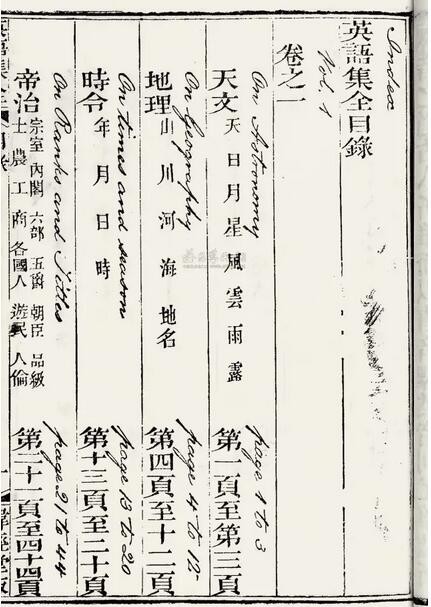 Index
英語集全目錄
Vol. 1
卷之一
On Astronomy
天文 天 日 月 星 風 雲 雨 露
page 1 to 3
第一頁至第三頁
On Geography
地理 山 川 河 海 地名
page 4 to 12
第四頁至十二頁
On times and season
時令 年 月 日 時
page 13 to 20
第十三頁至二十頁
On Ranks and Titles
帝治 宗室 內閣 六部 五爵 朝臣 品級
士 農 工 商 各國人 遊民 人倫
page 21 to 44
第二十一頁至四十四頁